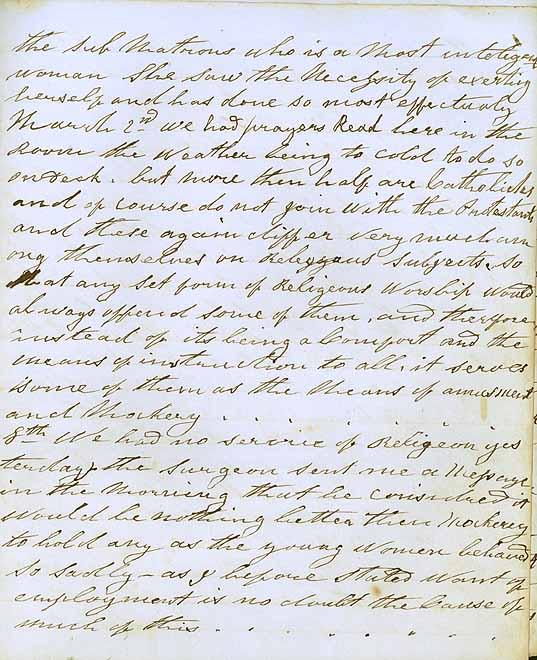 the Sub Matrons who is a Most inteligent
woman She saw the Necessity of exerting
herself and has done so most effectualy
March 2nd we had prayers Read here in the
Room the Weather being to cold to do so
on Deck. but more then half are Catholicks
and of course do not join with the Protestants
and these again differ very much am
ong themselves on Religous subjects. so
that any set form of Religeous Worship would
always offend some of them, and therefore
instead of its being a Comfort and the
means of instruction to all. it serves
some of them as the Means of amusment
and Mockery . . . . . . .
8th We had no service of Religeon yes
terday, the Surgeon sent me a Message
in the Morning that he considred it
would be nothing better then Mockerey
to hold any as the young Women behaved
so sadly - as I before stated Want of
employment is no doubt the Cause of
much of this. . . . . . .